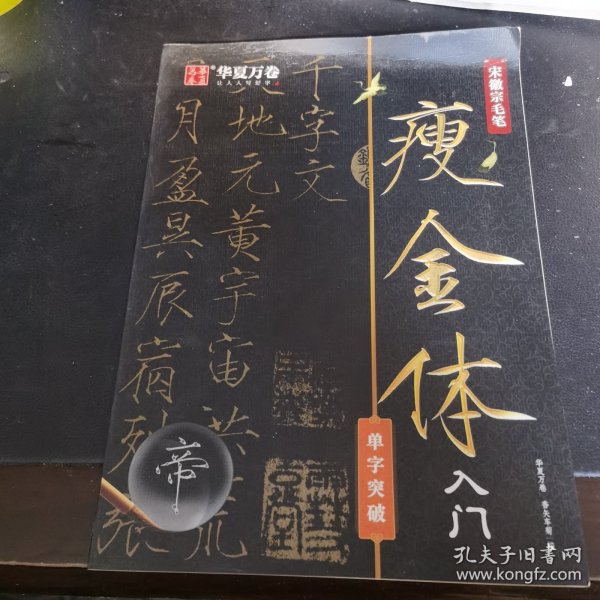 华夏万卷
让人人写好字
宋徽宗毛笔
瘦金体
入门
单字突破
千字文
地元黄宇宙洪荒
月盈昃辰宿列张
帝
华夏万卷
孔夫子旧书网
www.kongfz.com